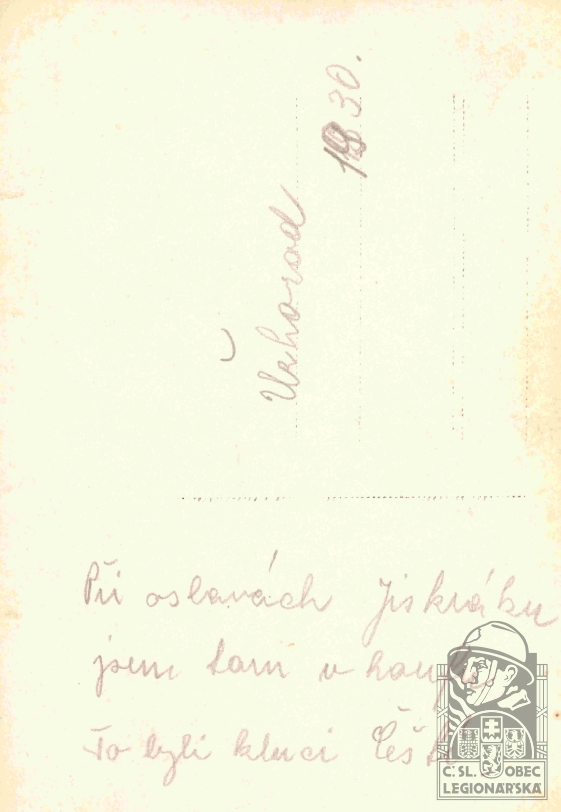 Užhorod 1930.
Při oslavách Jiskráků
jsem tam v
To byli kluci
Č. SL. OBEC
LEGIONÁŘSKÁ